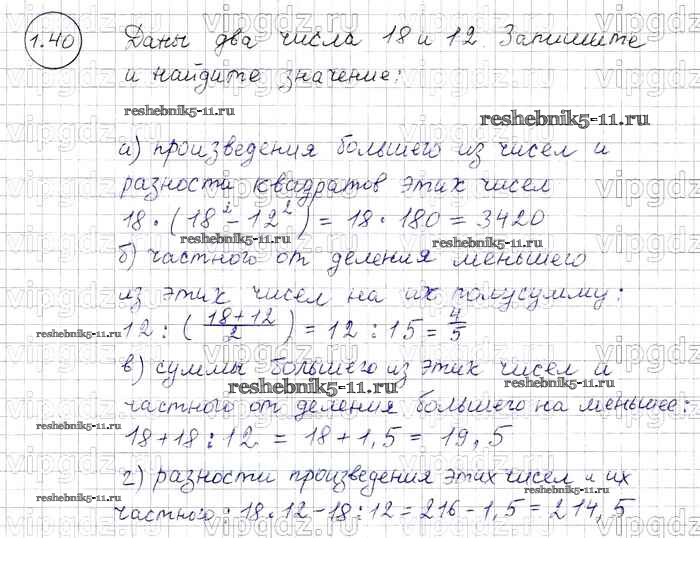 1.40 Даны два числа 18 и 12. Запишите
и найдите значение:
reshebnik5-11.ru
reshebnik5-11.ru
а) произведения большего из чисел и
разности квадратов этих чисел
18 · (18² - 12²) = 18 · 180 = 3420
reshebnik5-11.ru
reshebnik5-11.ru
б) частного от деления меньшего
из этих чисел на их полусумму:
12 : (18+12/2) = 12 : 15 = 4/5
reshebnik5-11.ru
в) суммы большего из этих чисел и
reshebnik5-11.ru
reshebnik5-11.ru
частного от деления большего на меньшее:
18 + 18 : 12 = 18 + 1,5 = 19,5
reshebnik5-11.ru
г) разности произведения этих чисел и их
reshebnik5-11.ru
reshebnik5-11.ru
частного : 18 · 12 - 18 : 12 = 216 - 1,5 = 214,5